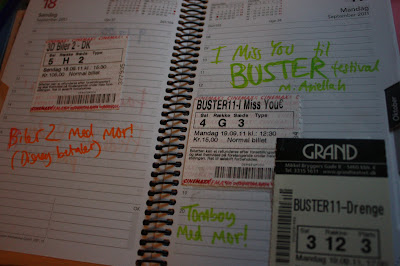 18
September 2011
3D Biler 2 - DK
Sal Række Sæde Type
5 H 2
Søndag 18.09.11 kl. 12:30
Kr.105,00 Normal billet
Biler 2 Med Mor!
(Disney betaler)
Mandag
September 2011
I Miss You til
BUSTER festival
BUSTER11-I Miss You
Sal Række Sæde Type
4 G 3
Mandag 19.09.11 kl.
Kr.15,00 Normal billet
Tomboy
Med Mor!
Oktober
GRAND
BUSTER11-Drenge
Sal Række Plads
3 12 3